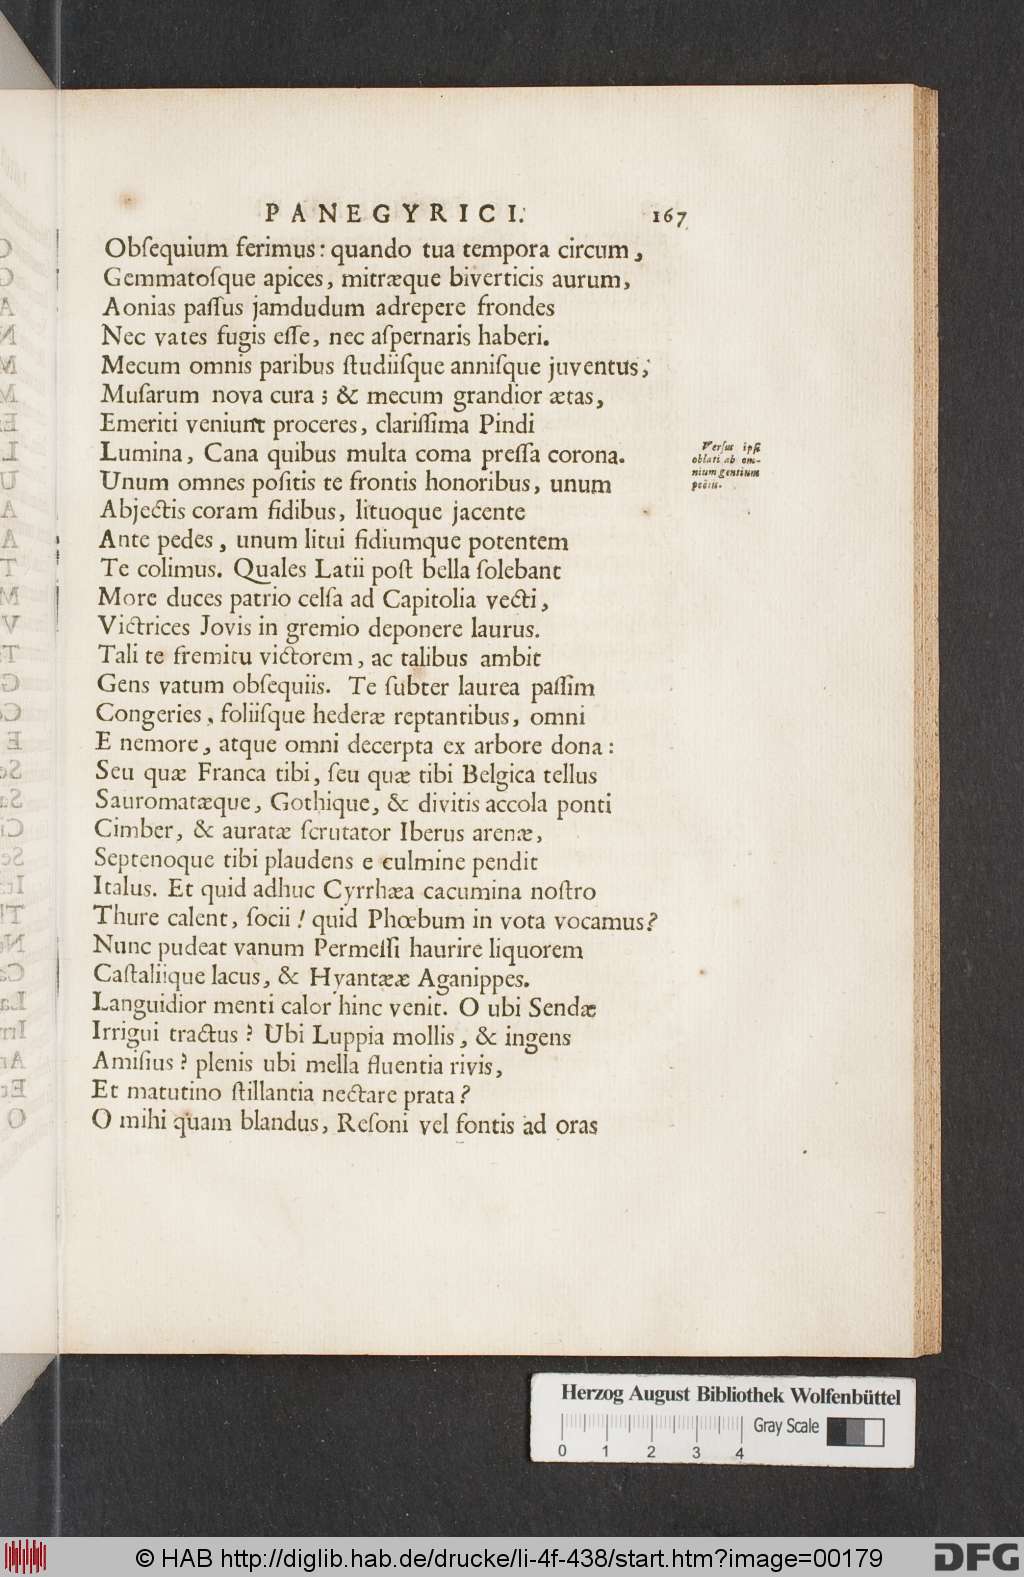 PANEGYRICI. 167
Obſequium ferimus: quando tua tempora circum,
Gemmatoſque apices, mitræque biverticis aurum,
Aonias paſſus jamdudum adrepere frondes
Nec vates fugis eſſe, nec aſpernaris haberi.
Mecum omnis paribus ſtudiiſque anniſque juventus;
Muſarum nova cura; & mecum grandior ætas,
Emeriti veniunt proceres, clariſſima Pindi
Lumina, Cana quibus multa coma preſſa corona.
Verſus ipſi
oblati ab om-
nium gentium
poëtis.
Unum omnes poſitis te frontis honoribus, unum
Abjectis coram fidibus, lituoque jacente
Ante pedes, unum litui fidiumque potentem
Te colimus. Quales Latii poſt bella ſolebant
More duces patrio celſa ad Capitolia vecti,
Victrices Jovis in gremio deponere laurus.
Tali te fremitu victorem, ac talibus ambit
Gens vatum obſequiis. Te ſubter laurea paſſim
Congeries, foliiſque hederæ reptantibus, omni
E nemore, atque omni decerpta ex arbore dona:
Seu quæ Franca tibi, ſeu quæ tibi Belgica tellus
Sauromatæque, Gothique, & divitis accola ponti
Cimber, & auratæ ſcrutator Iberus arenæ,
Septenoque tibi plaudens e culmine pendit
Italus. Et quid adhuc Cyrrhæa cacumina noſtro
Thure calent, ſocii! quid Phœbum in vota vocamus?
Nunc pudeat vanum Permeſſi haurire liquorem
Caſtaliique lacus, & Hyantææ Aganippes.
Languidior menti calor hinc venit. O ubi Sendæ
Irrigui tractus? Ubi Luppia mollis, & ingens
Amiſius? plenis ubi mella fluentia rivis,
Et matutino ſtillantia nectare prata?
O mihi quam blandus, Reſoni vel fontis ad oras
Herzog August Bibliothek Wolfenbüttel
Gray Scale
0 1 2 3 4
© HAB http://diglib.hab.de/drucke/li-4f-438/start.htm?image=00179
DFG